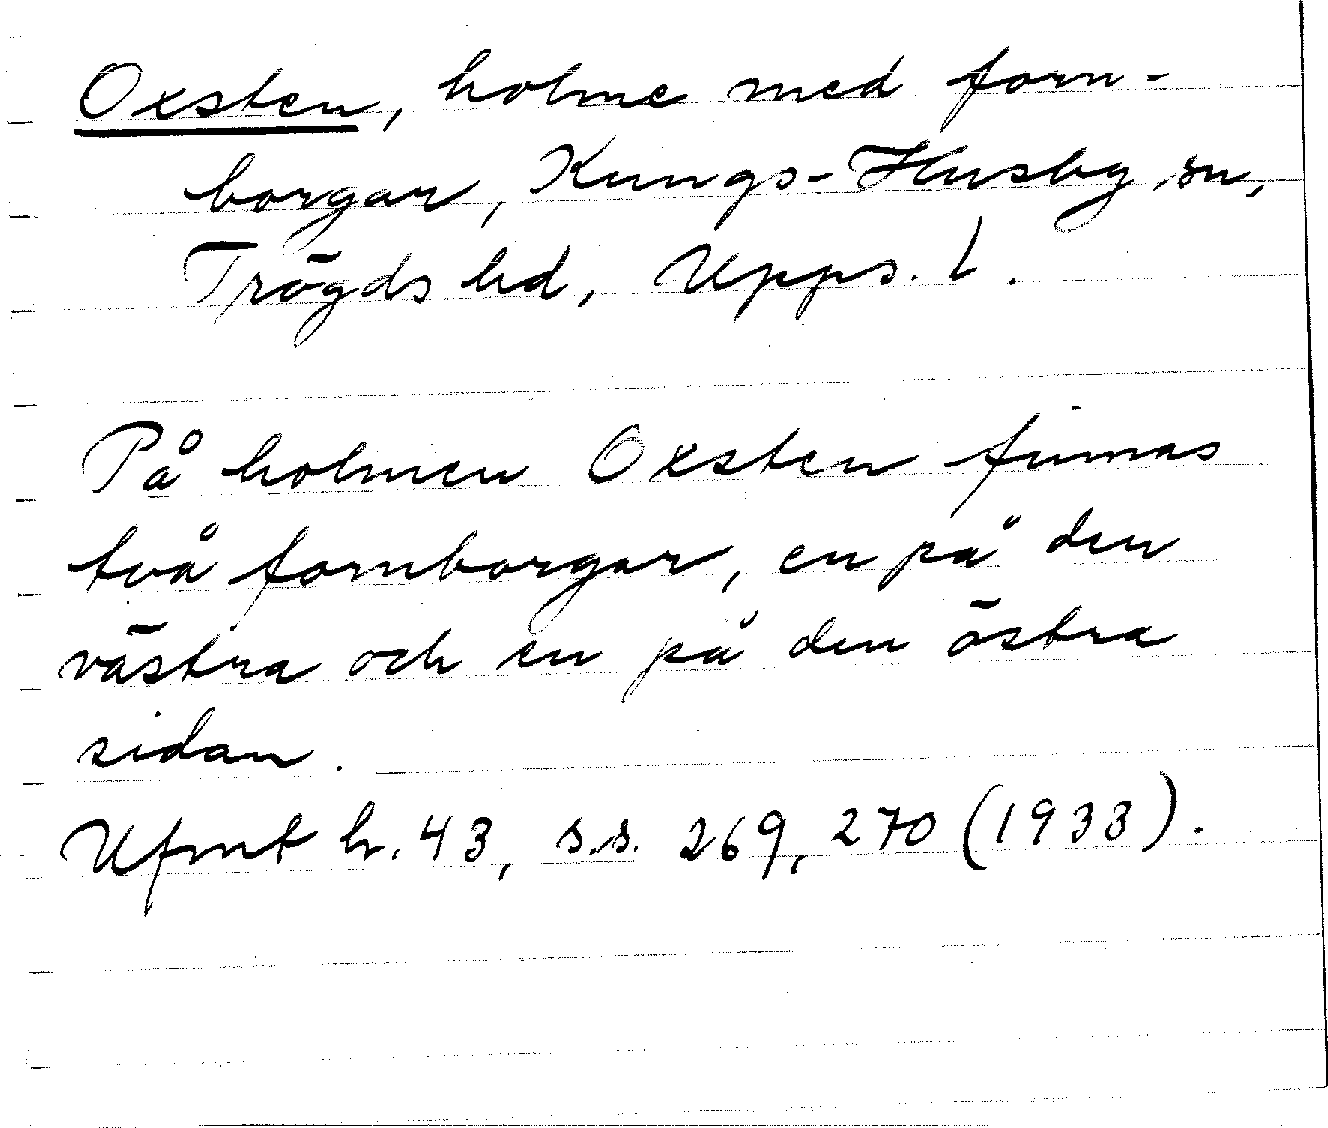 Oxsten, holme med forn-
borgar, Kungs-Husby sn,
Trögds hd, Upps. l.
På holmen Oxsten finnas
två fornborgar, en på den
västra och en på den östra
sidan.
Ufmt h. 43, s.s. 269, 270 (1933).